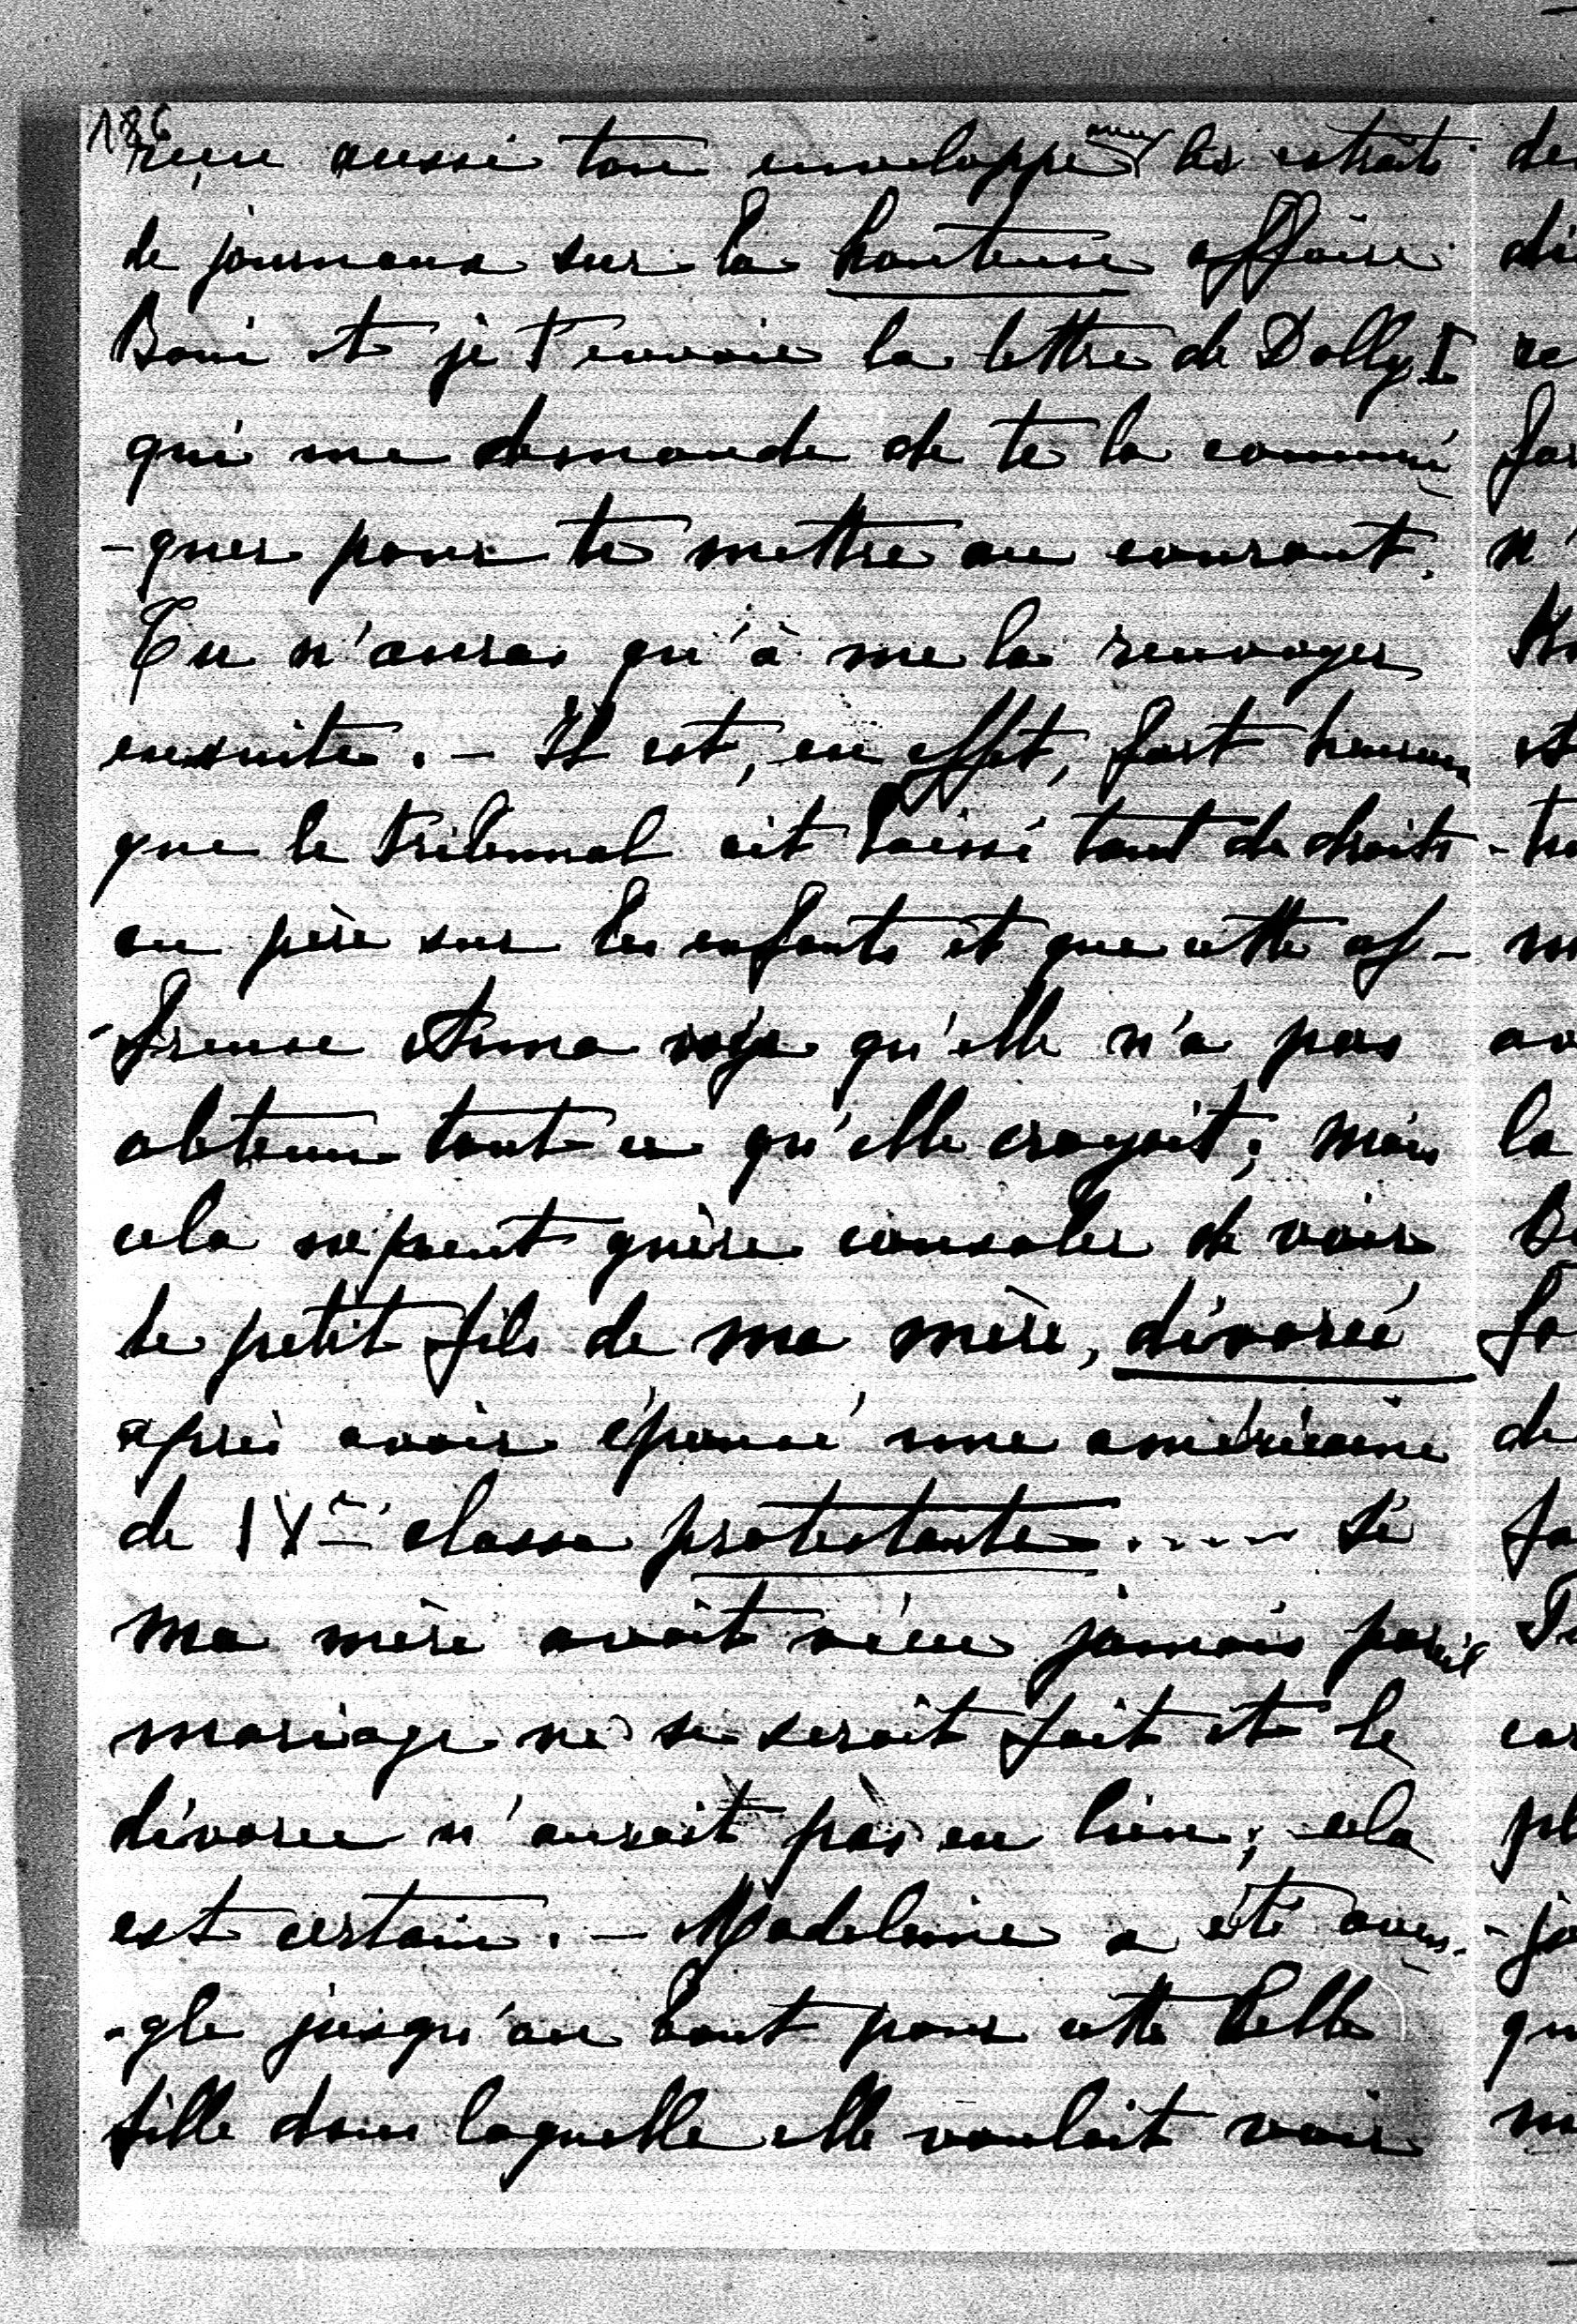 186
reçu aussi ton enveloppe avec les extraits
de journaux sur la honteuse affaire
Boni et je t'envoie la lettre de Dolly I
qui me demande de te la communi
-quer pour te mettre au courant.
Tu n'auras qu'à me la renvoyer
ensuite. - Il est, en effet, fort heureux
que le tribunal ait laissé tant de droits
au père sur les enfants et que cette af-
-freuse Anna voye qu'elle n'a pas
obtenu tout ce qu'elle croyait; mais
cela ne peut guère consoler de voir
le petit fils de ma mère, divorcé
après avoir épousé une américaine
de IVe classe protestante ..... Si
ma mère avait vécu jamais pareil
mariage ne se serait fait et le
divorce n'aurait pas eu lieu; cela
est certain. - Madeleine a été aveu-
-gle jusqu'au bout pour cette belle
fille dans laquelle elle voulait voir